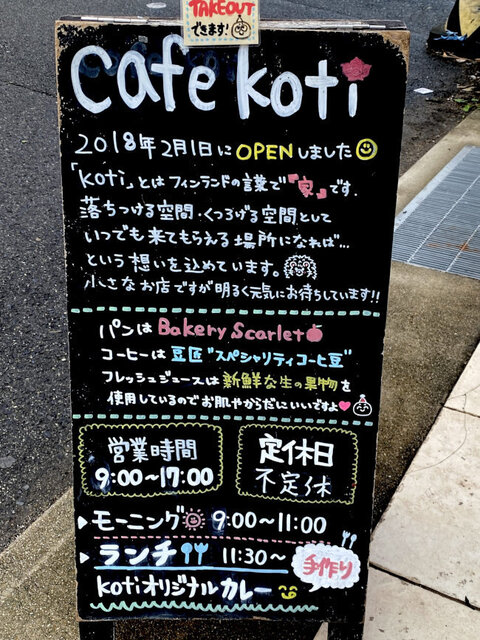 TAKEOUT
できます!
cafe koti
2018年2月1日にOPENしました
「koti」とはフィンランドの言葉で『家』です.
落ちつける空間・くつろげる空間として
いつでも来てもらえる場所になれば…
という想いを込めています。
小さなお店ですが明るく元気にお待ちしています!!
パンは Bakery Scarlet
コーヒーは 豆匠 "スペシャリティコーヒー豆"
フレッシュジュースは新鮮な生の果物を
使用しているのでお肌やからだにいいですよ
営業時間
9:00~17:00
定休日
不定休
モーニング 9:00~11:00
ランチ 11:30~
手作り
kotiオリジナルカレー